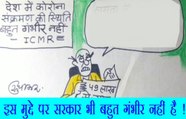 देश में कोरोना
संक्रमण की स्थिति
बहुत गंभीर नहीं
- ICMR -
४७ लाख
इस मुद्दे पर सरकार भी बहुत गंभीर नहीं है !